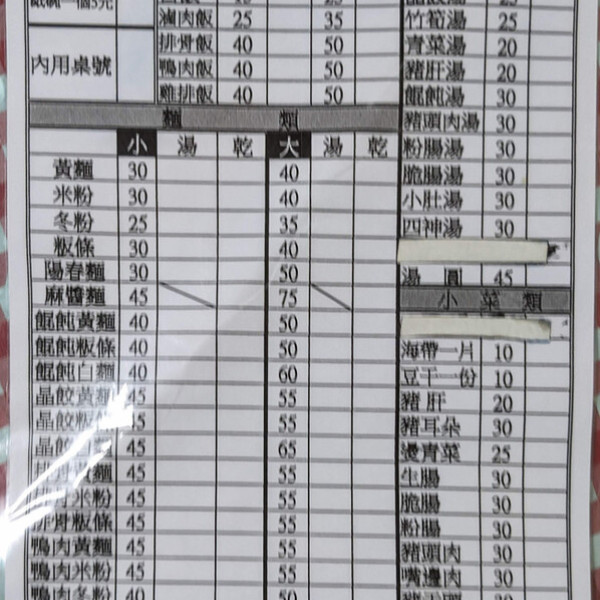 紙碗一個5元
滷肉飯 25 35
內用桌號
排骨飯 40 50
鴨肉飯 40 50
雞排飯 40 50
麵 類
小 湯 乾 大 湯 乾
黃麵 30 40
米粉 30 40
冬粉 25 35
粄條 30 40
陽春麵 30 50
麻醬麵 45 75
餛飩黃麵 40 50
餛飩粄條 40 50
餛飩白麵 40 60
晶餃黃麵 45 55
晶餃粄條 45 55
晶餃 45 65
排骨黃麵 45 55
排骨米粉 45 55
排骨粄條 45 55
鴨肉黃麵 45 55
鴨肉米粉 45 55
鴨肉冬粉 40 50
竹筍湯 25
青菜湯 20
豬肝湯 20
餛飩湯 30
豬頭肉湯 30
粉腸湯 30
脆腸湯 30
小肚湯 30
四神湯 30
湯圓 45
小菜類
海帶一片 10
豆干一份 10
豬肝 20
豬耳朵 30
燙青菜 25
生腸 30
脆腸 30
粉腸 30
豬頭肉 30
嘴邊肉 30
30